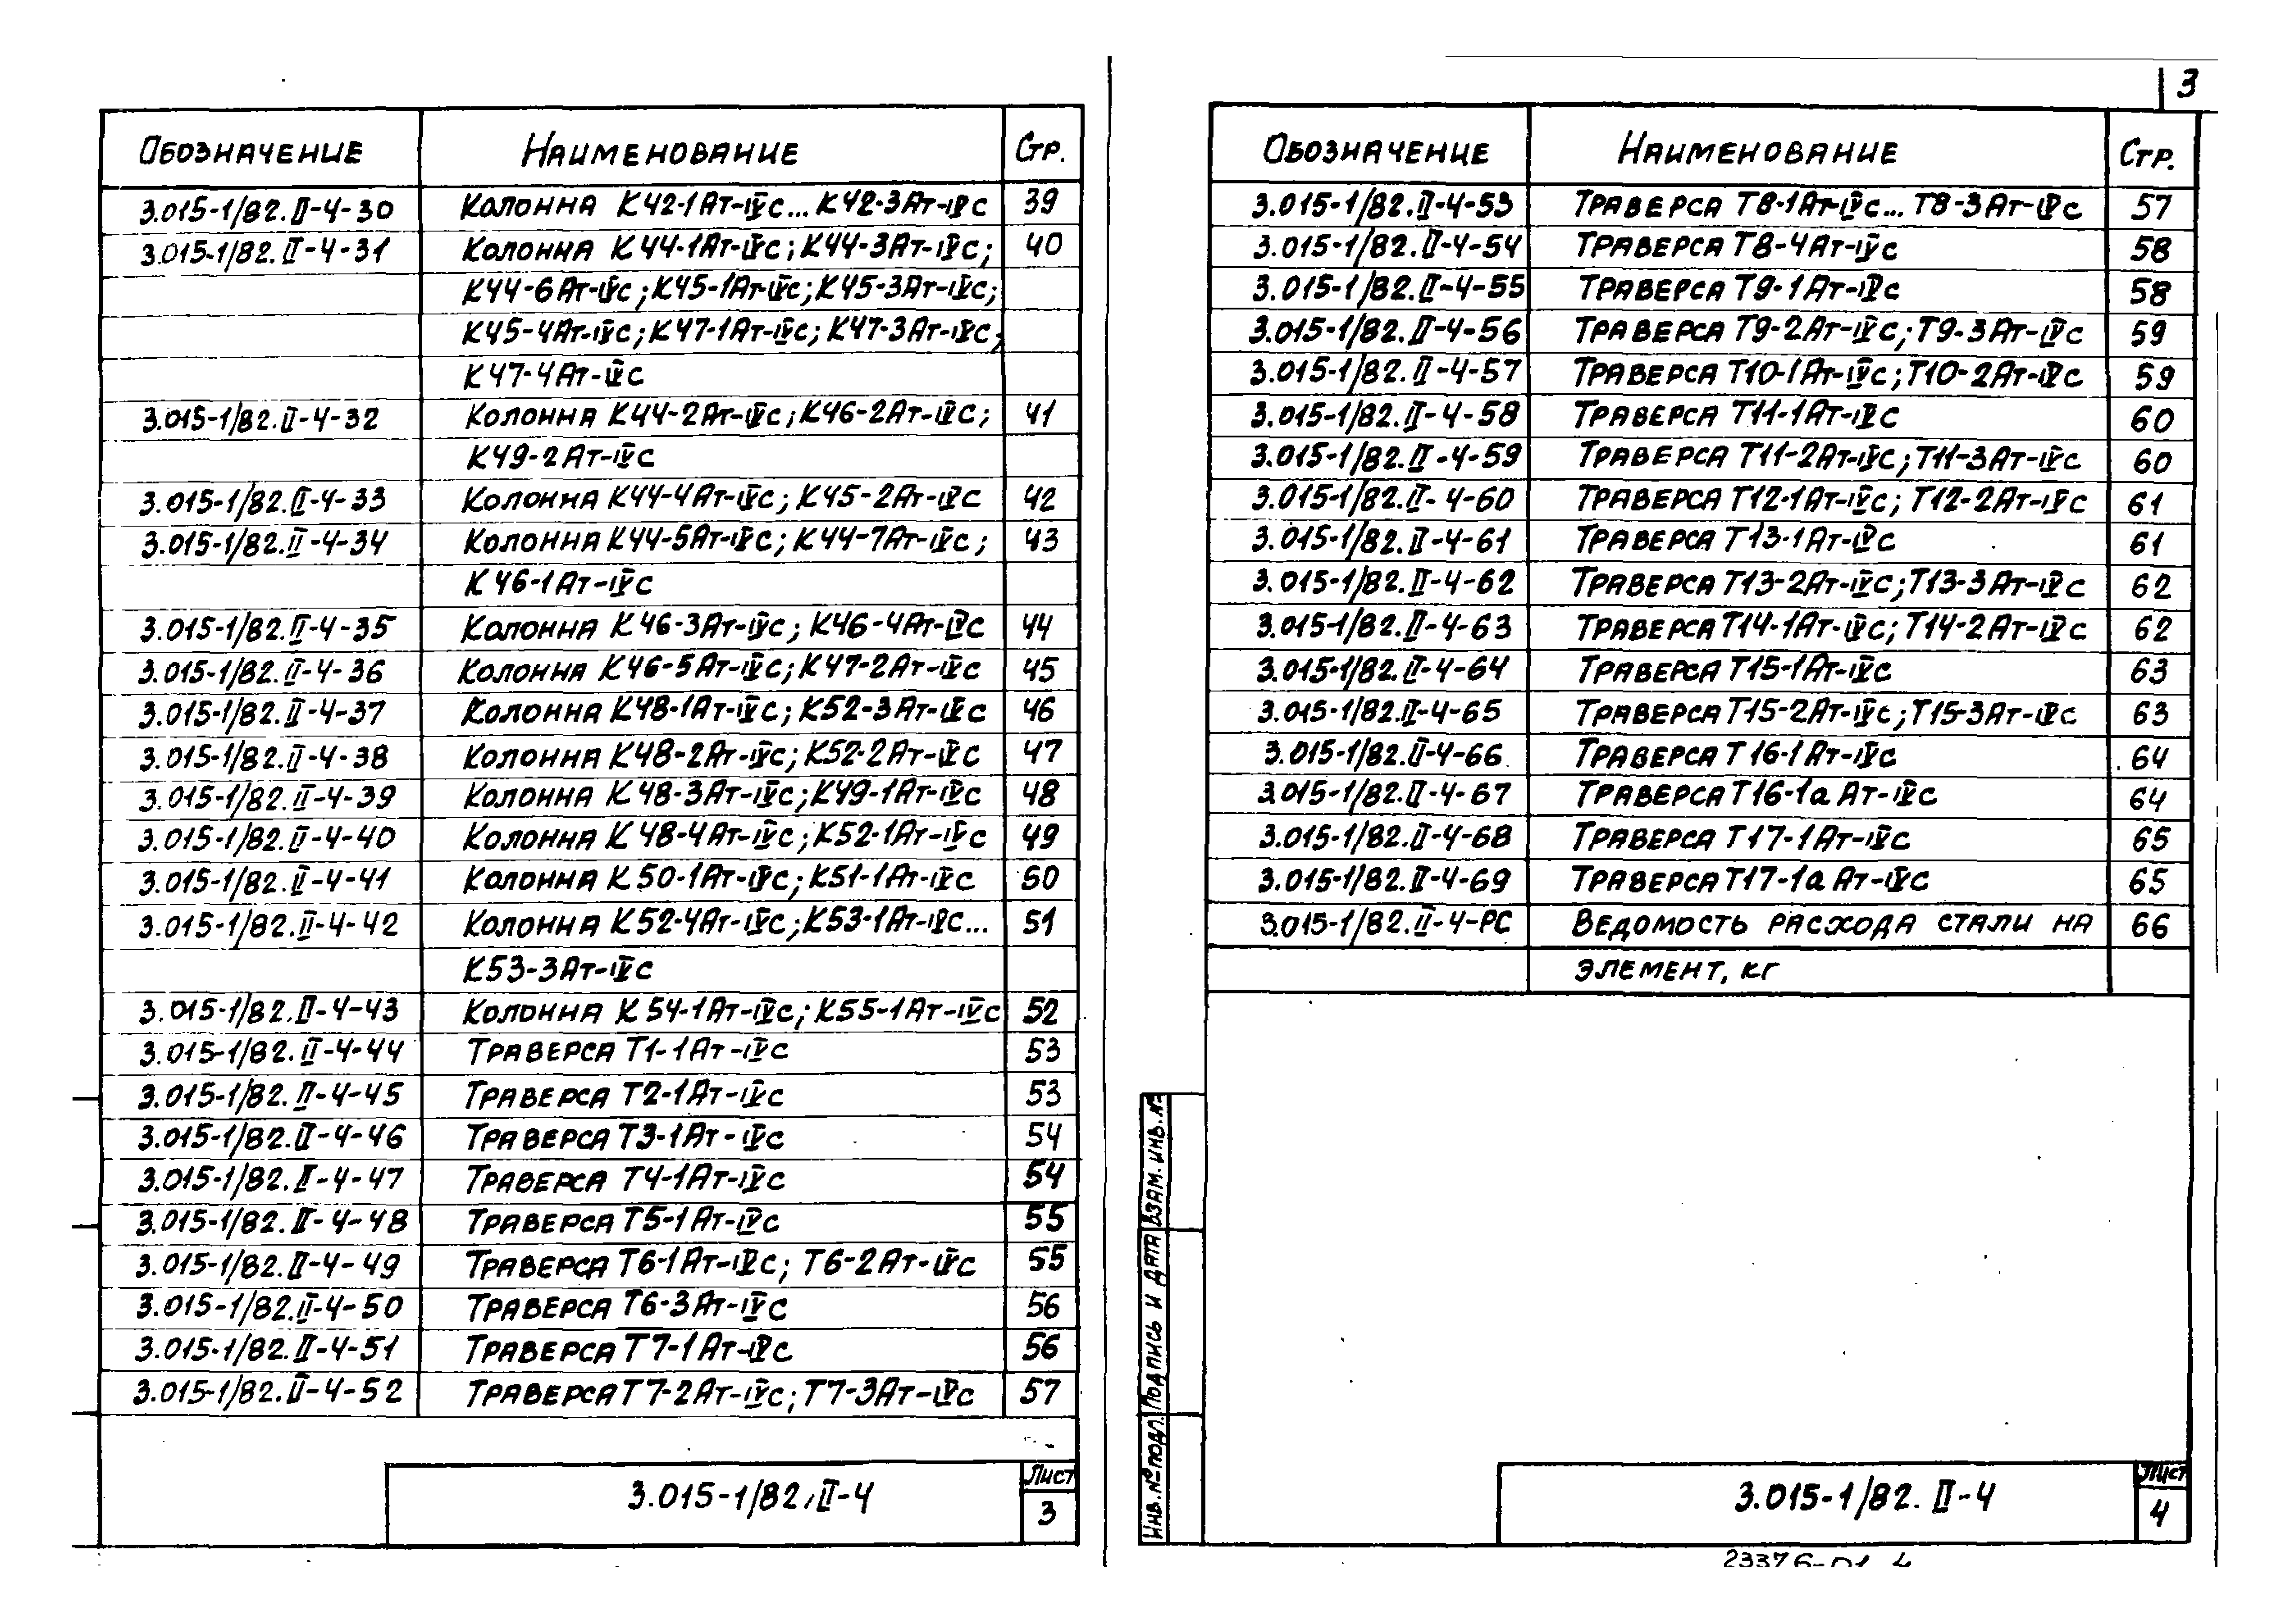 Обозначение Наименование Стр.
3.015-1/82.II-4-30 Колонна К42-1Ат-IVс...К42-3Ат-IVс 39
3.015-1/82.II-4-31 Колонна К44-1Ат-IVс; К44-3Ат-IVс; 40
К44-6Ат-IVс; К45-1Ат-IVс; К45-3Ат-IVс;
К45-4Ат-IVс; К47-1Ат-IVс; К47-3Ат-IVс;
К47-4Ат-IVс
3.015-1/82.II-4-32 Колонна К44-2Ат-IVс; К46-2Ат-IVс; 41
К49-2Ат-IVс
3.015-1/82.II-4-33 Колонна К44-4Ат-IVс; К45-2Ат-IVс 42
3.015-1/82.II-4-34 Колонна К44-5Ат-IVс; К44-7Ат-IVс; 43
К46-1Ат-IVс
3.015-1/82.II-4-35 Колонна К46-3Ат-IVс; К46-4Ат-IVс 44
3.015-1/82.II-4-36 Колонна К46-5Ат-IVс; К47-2Ат-IVс 45
3.015-1/82.II-4-37 Колонна К48-1Ат-IVс; К52-3Ат-IVс 46
3.015-1/82.II-4-38 Колонна К48-2Ат-IVс; К52-2Ат-IVс 47
3.015-1/82.II-4-39 Колонна К48-3Ат-IVс; К49-1Ат-IVс 48
3.015-1/82.II-4-40 Колонна К48-4Ат-IVс; К52-1Ат-IVс 49
3.015-1/82.II-4-41 Колонна К50-1Ат-IVс; К51-1Ат-IVс 50
3.015-1/82.II-4-42 Колонна К52-4Ат-IVс; К53-1Ат-IVс... 51
К53-3Ат-IVс
3.015-1/82.II-4-43 Колонна К54-1Ат-IVс; К55-1Ат-IVс 52
3.015-1/82.II-4-44 Траверса Т1-1Ат-IVс 53
3.015-1/82.II-4-45 Траверса Т2-1Ат-IVс 53
3.015-1/82.II-4-46 Траверса Т3-1Ат-IVс 54
3.015-1/82.II-4-47 Траверса Т4-1Ат-IVс 54
3.015-1/82.II-4-48 Траверса Т5-1Ат-IVс 55
3.015-1/82.II-4-49 Траверса Т6-1Ат-IVс; Т6-2Ат-IVс 55
3.015-1/82.II-4-50 Траверса Т6-3Ат-IVс 56
3.015-1/82.II-4-51 Траверса Т7-1Ат-IVс 56
3.015-1/82.II-4-52 Траверса Т7-2Ат-IVс; Т7-3Ат-IVс 57
3.015-1/82.II-4
Лист
3
3
Обозначение Наименование Стр.
3.015-1/82.II-4-53 Траверса Т8-1Ат-IVс...Т8-3Ат-IVс 57
3.015-1/82.II-4-54 Траверса Т8-4Ат-IVс 58
3.015-1/82.II-4-55 Траверса Т9-1Ат-IVс 58
3.015-1/82.II-4-56 Траверса Т9-2Ат-IVс; Т9-3Ат-IVс 59
3.015-1/82.II-4-57 Траверса Т10-1Ат-IVс; Т10-2Ат-IVс 59
3.015-1/82.II-4-58 Траверса Т11-1Ат-IVс 60
3.015-1/82.II-4-59 Траверса Т11-2Ат-IVс; Т11-3Ат-IVс 60
3.015-1/82.II-4-60 Траверса Т12-1Ат-IVс; Т12-2Ат-IVс 61
3.015-1/82.II-4-61 Траверса Т13-1Ат-IVс 61
3.015-1/82.II-4-62 Траверса Т13-2Ат-IVс; Т13-3Ат-IVс 62
3.015-1/82.II-4-63 Траверса Т14-1Ат-IVс; Т14-2Ат-IVс 62
3.015-1/82.II-4-64 Траверса Т15-1Ат-IVс 63
3.015-1/82.II-4-65 Траверса Т15-2Ат-IVс; Т15-3Ат-IVс 63
3.015-1/82.II-4-66 Траверса Т16-1Ат-IVс 64
3.015-1/82.II-4-67 Траверса Т16-1а Ат-IVс 64
3.015-1/82.II-4-68 Траверса Т17-1Ат-IVс 65
3.015-1/82.II-4-69 Траверса Т17-1а Ат-IVс 65
3.015-1/82.II-4-РС Ведомость расхода стали на 66
элемент, кг
Инв. № подл. Подпись и дата Взам. инв. №
3.015-1/82.II-4
Лист
4
23376-01 4